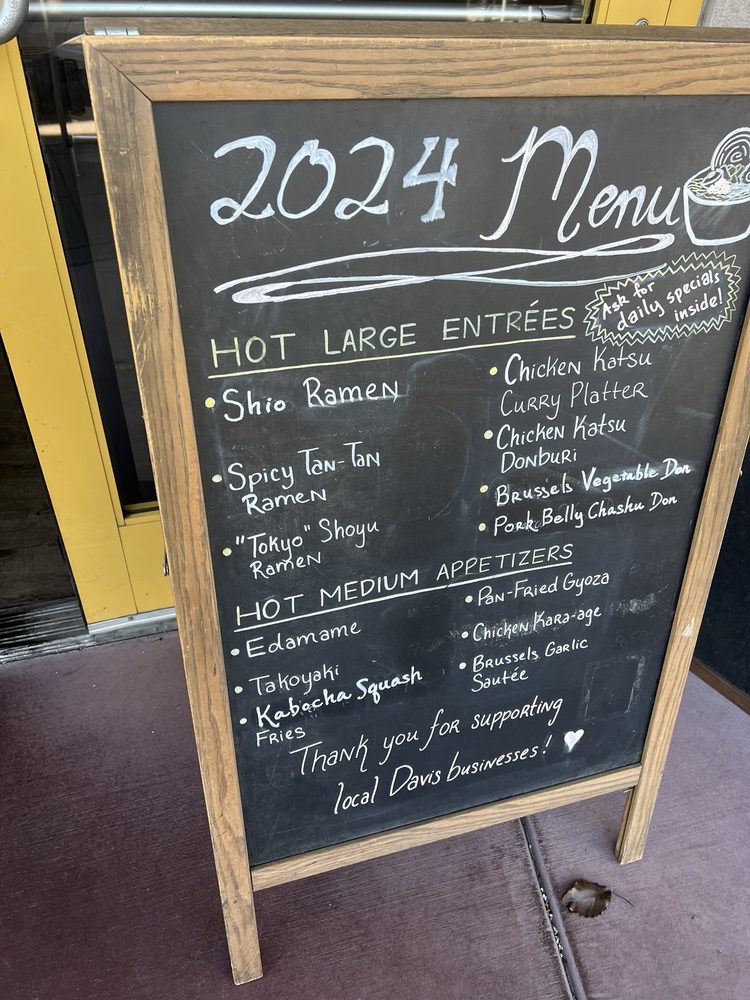 2024 Menu
Ask for
daily specials
inside!
HOT LARGE ENTRÉES
• Shio Ramen
• Spicy Tan-Tan
Ramen
• "Tokyo" Shoyu
Ramen
• Chicken Katsu
Curry Platter
• Chicken Katsu
Donburi
• Brussels Vegetable Don
• Pork Belly Chashu Don
HOT MEDIUM APPETIZERS
• Edamame
• Takoyaki
• Kabocha Squash
Fries
• Pan-Fried Gyoza
• Chicken Kara-age
• Brussels Garlic
Sautée
Thank you for supporting
local Davis businesses!